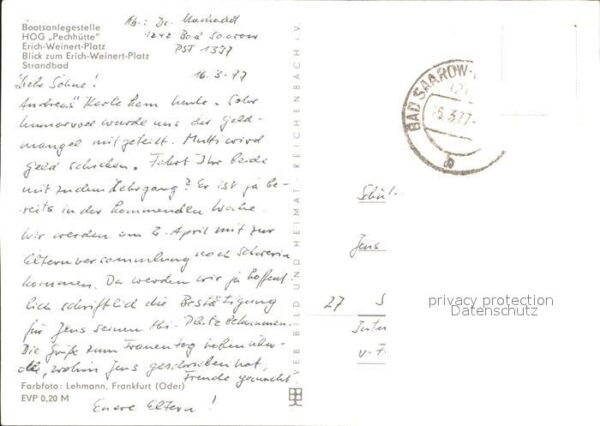 Bootsanlegestelle
HOG „Pechhütte"
Erich-Weinert-Platz
Blick zum Erich-Weinert-Platz
Strandbad
Ab.: Dr.
1242 Bad Saarow
PST 1337
16.3.77
Liebe Söhne!
Andreas' Karte kam heute. Sehr
humorvoll wurde uns der Geld-
mangel mitgeteilt. Mutti wird
Geld schicken. Fahrt Ihr beide
mit zu dem Lehrgang? Er ist ja be-
reits in der kommenden Woche.
Wir werden am 2. April mit zur
Elternversammlung nach Schwerin
kommen. Da werden wir ja hoffent-
lich schriftlich die Bestätigung
für Jens seinen Abi-Platz bekommen.
Die Grüße zum Frauentag haben
wohin Jens geschrieben hat,
Freude gemacht
Eure Eltern!
Farbfoto: Lehmann, Frankfurt (Oder)
EVP 0,20 M
VEB BILD UND HEIMAT REICHENBACH i. V.
BAD SAAROW-
6.3.77-
b
Schül.
Jens
27 S
Inter
privacy protection
Datenschutz